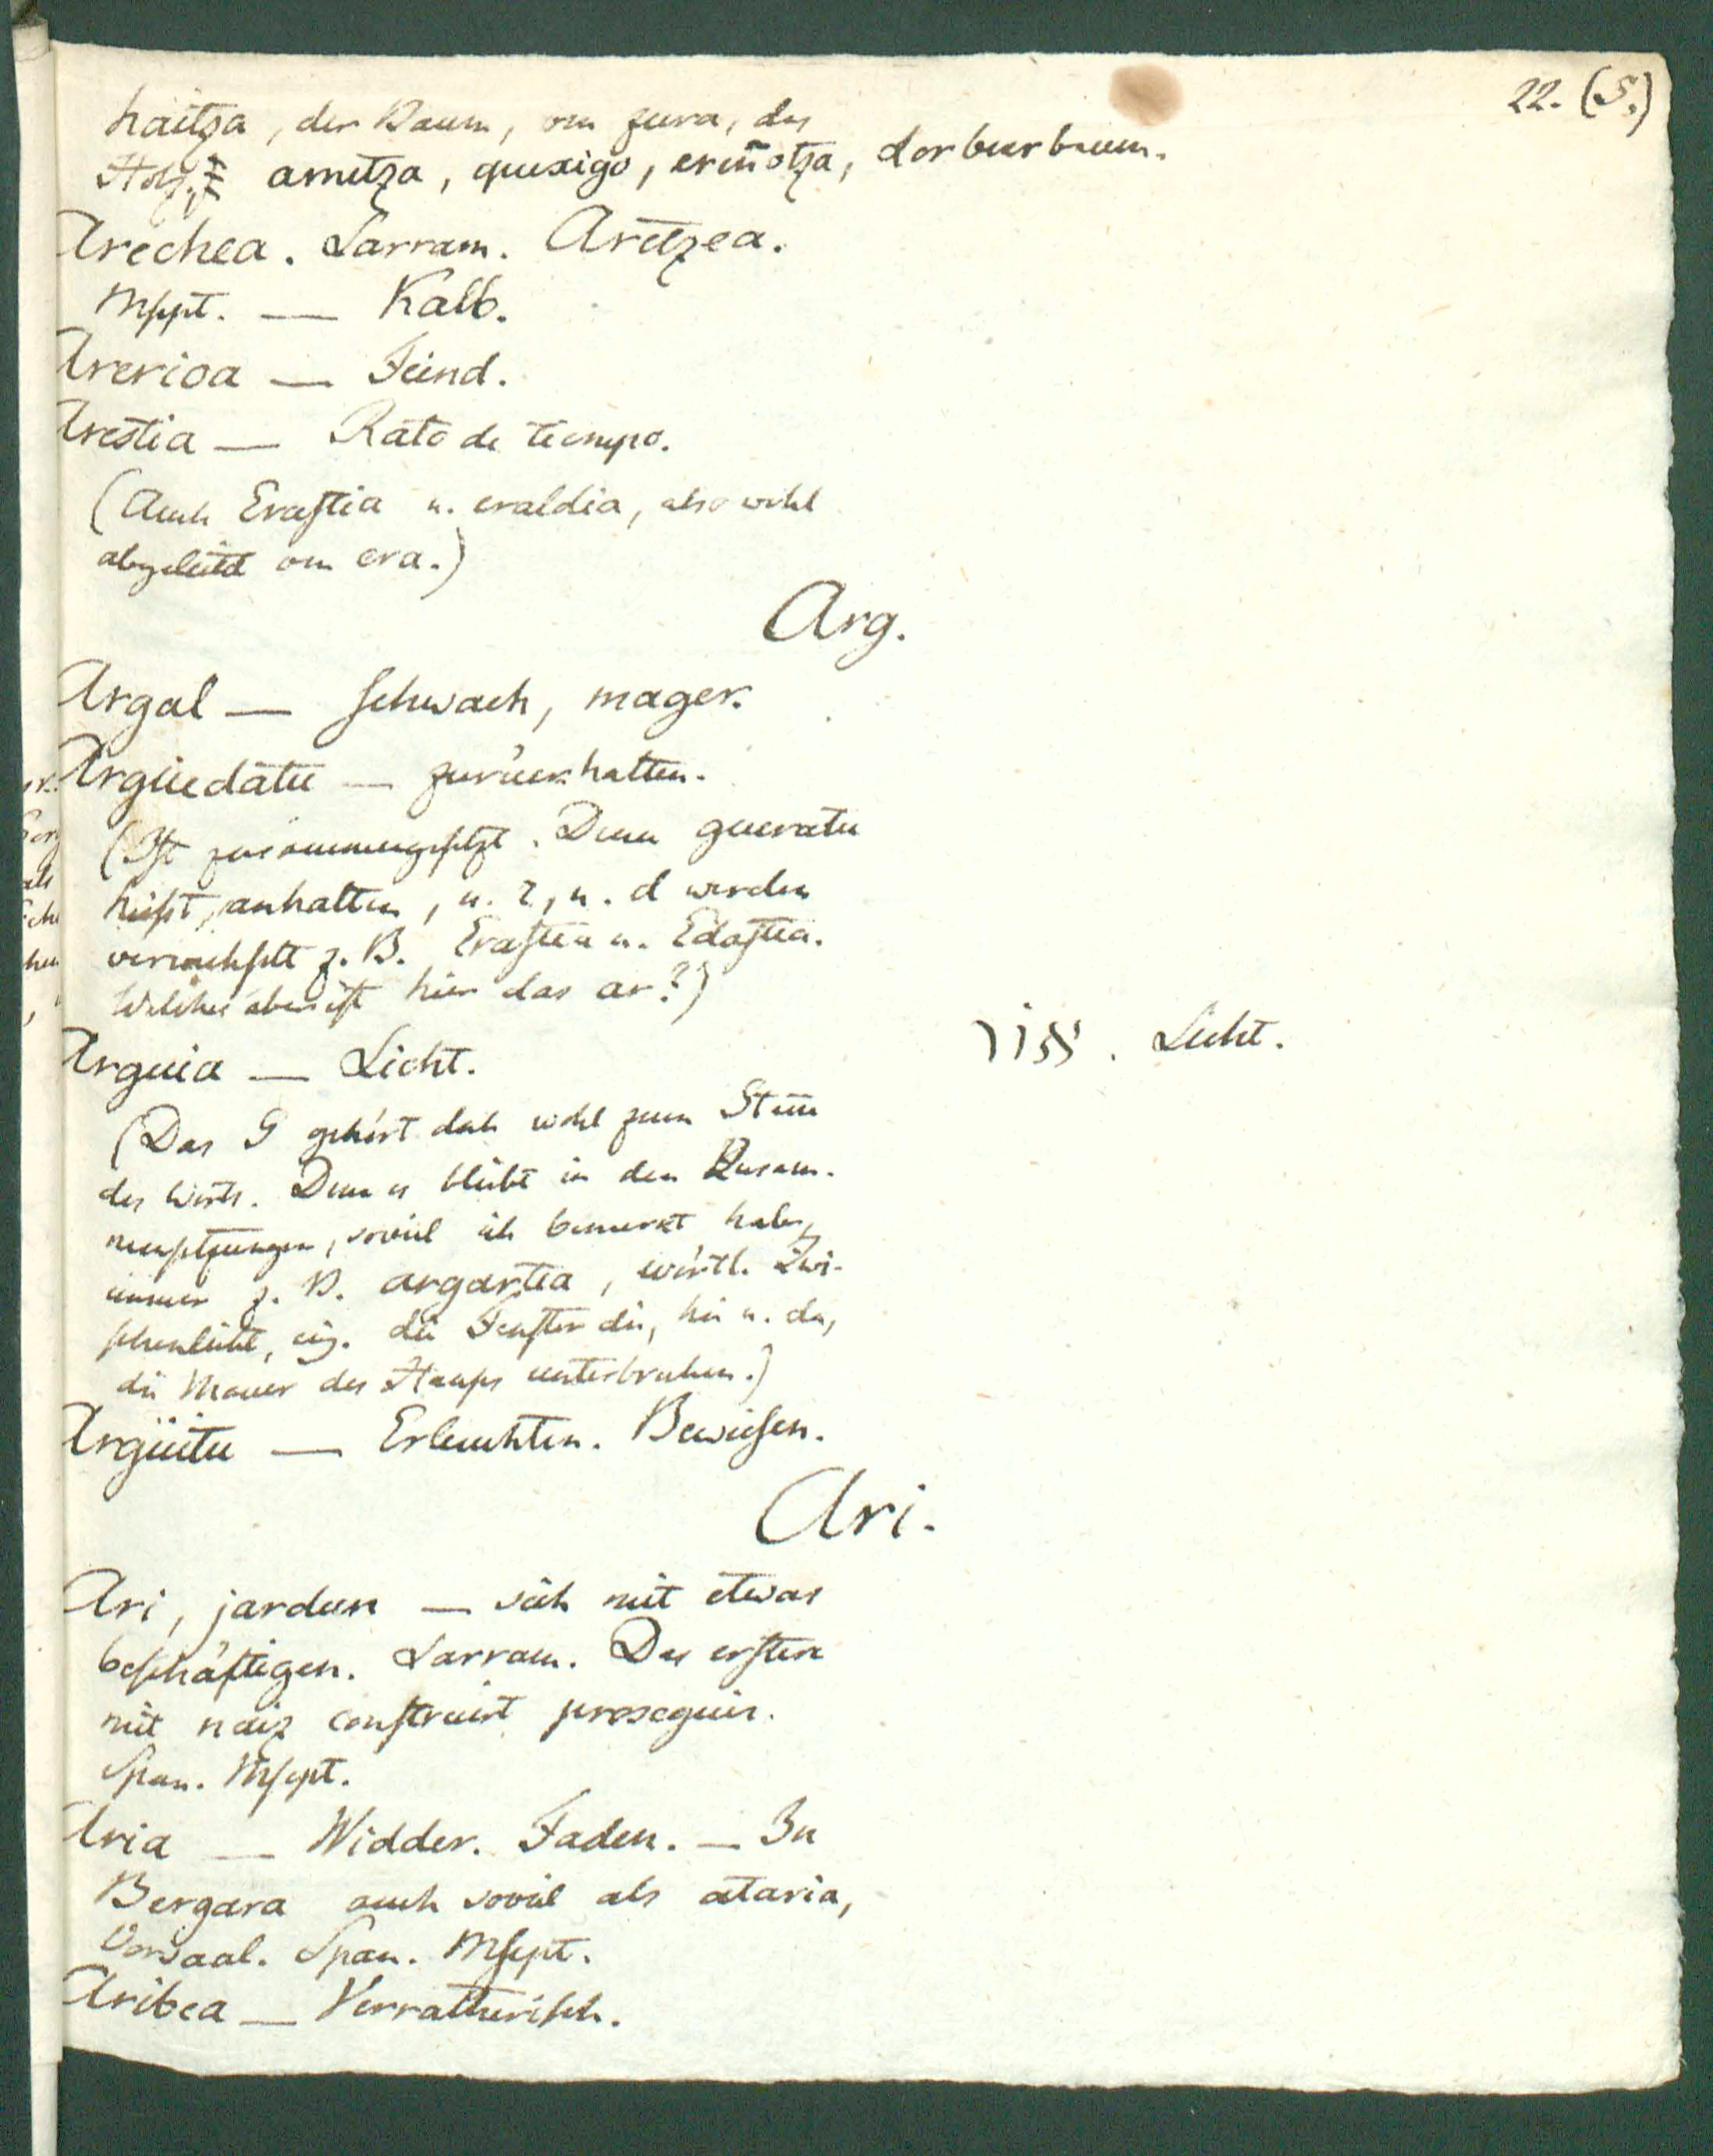 22. (5.)
haitza, der Baum, von zura, das
Holz. ametza, quexigo, eruñotza, Lorbeerbaum.
Arechea. Larram. Aretzea.
Mspt. — Kalb.
Arerioa — Feind.
Arestia — Rato de tiempo.
(Auch Erastia u. eraldia, also wohl
abgeleitet von era.)
Arg.
Argal — schwach, mager.
Argüedatu — zurückhalten.
(Ist zusammengesetzt. Denn gueratu
heißt, anhalten, u. r, u. d werden
verwechselt z. B. Erastea u. Edastea.
Welches aber ist hier das ar?)
Arguia — Licht.
Licht.
(Das G gehört doch wohl zum Stamm
des Worts. Denn es bleibt in den Zusam-
mensetzungen, soviel ich bemerkt habe,
immer z. B. argartea, wörtl. Zwi-
schenlicht, eig. die Fenster die, hie u. da,
die Mauer des Hauses unterbrechen.)
Argüitu — Erleuchten. Beweisen.
Ari.
Ari, jardun — sich mit etwas
beschäftigen. Larram. Das erstere
mit naiz construirt proseguir.
Span. Mscpt.
Aria — Widder. Faden. — In
Bergara auch soviel als ataria,
Vorsaal. Span. Mscpt.
Aribea — Verrätherisch.